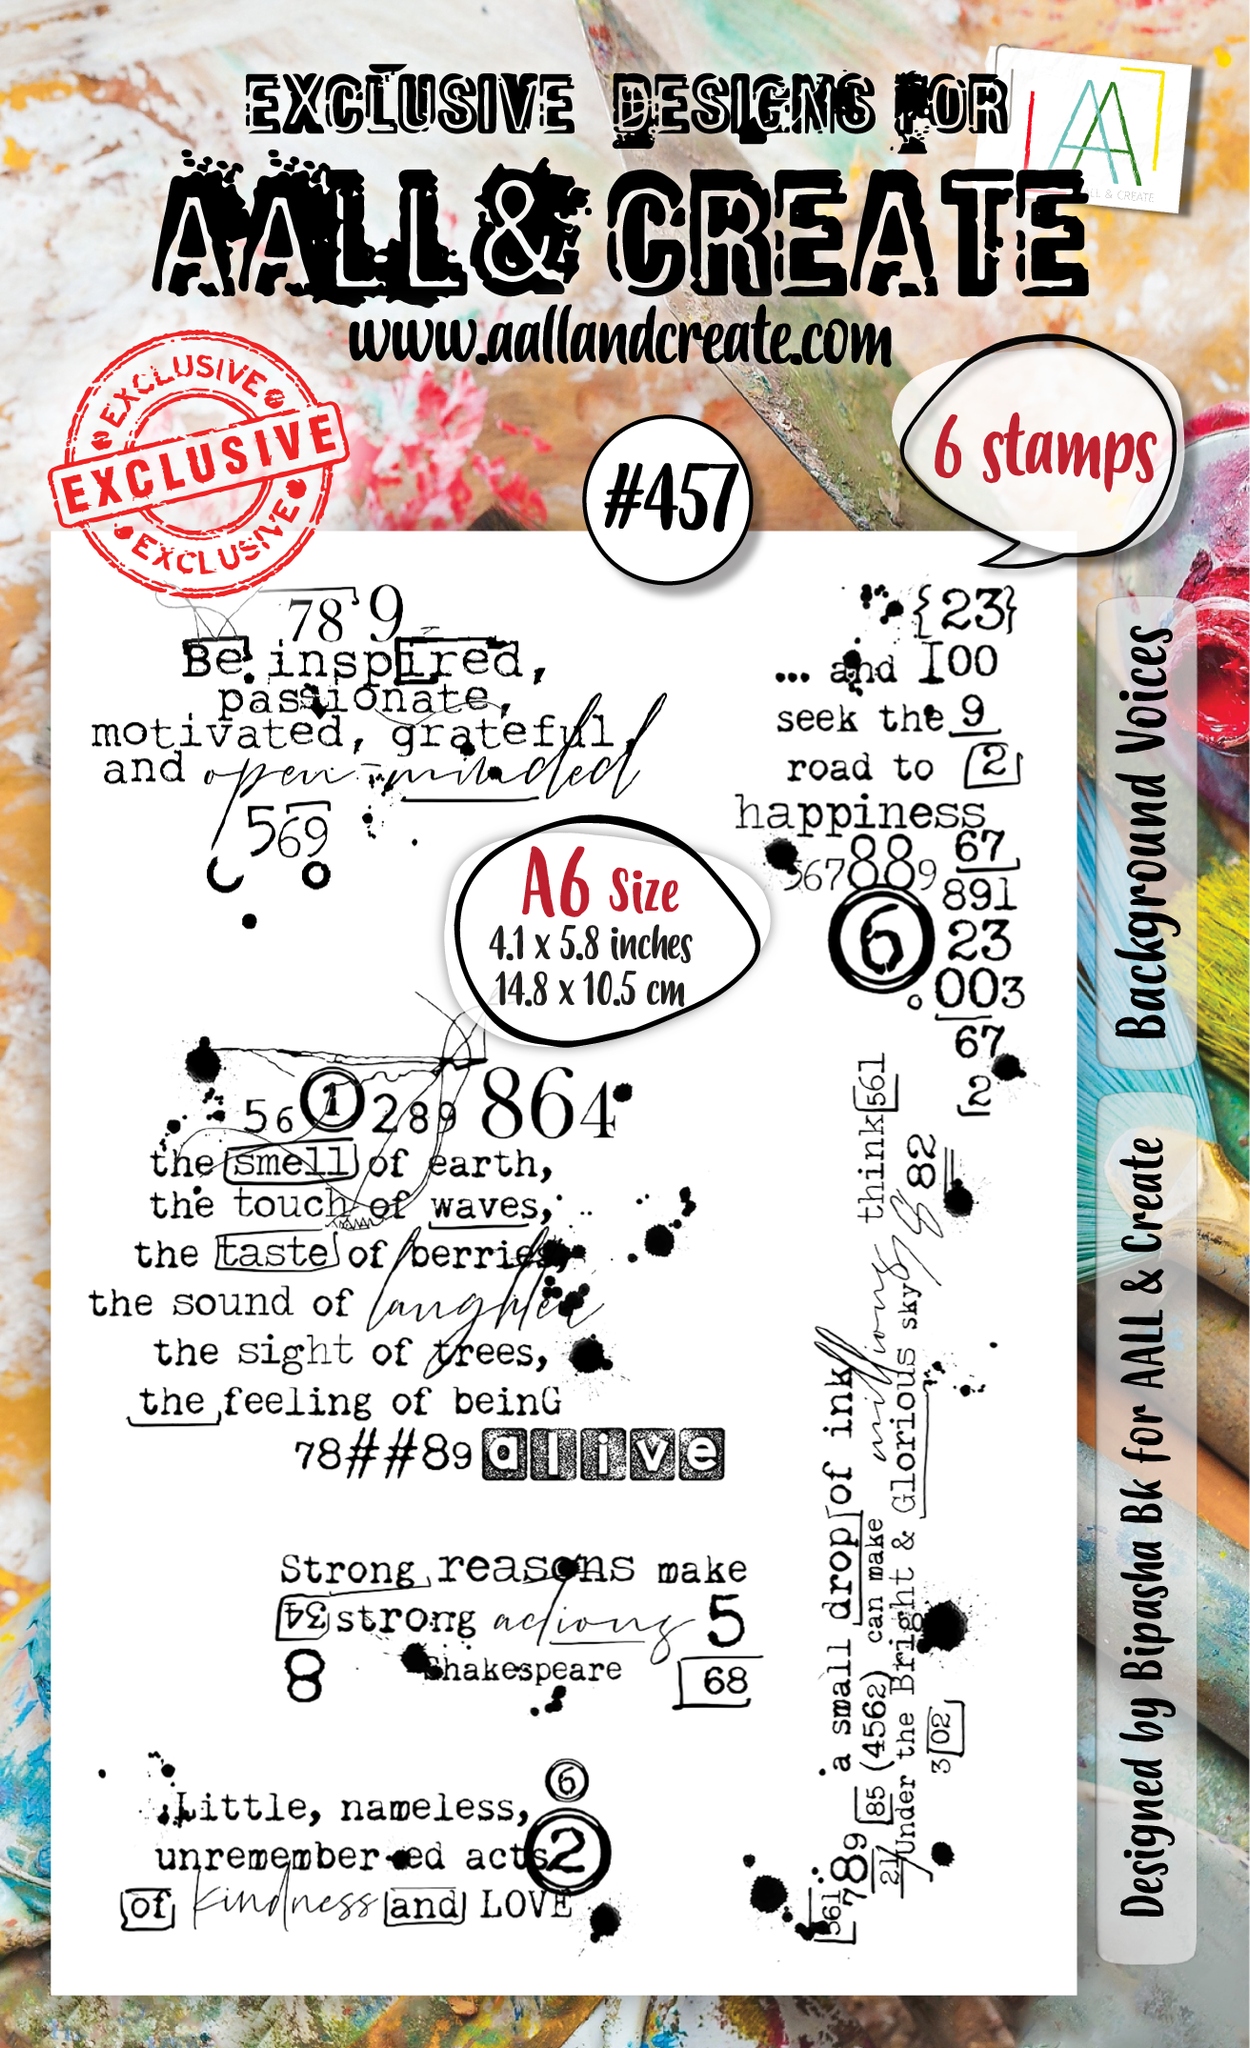 EXCLUSIVE DESIGNS FOR
AALL & CREATE
www.aallandcreate.com
AA
ALL & CREATE
EXCLUSIVE
EXCLUSIVE
EXCLUSIVE
#457
6 stamps
78 9
Be inspired,
passionate,
motivated, grateful,
and open-minded
569
{23}
... and 100
seek the 9
road to 2
happiness
567889
67
891
6
23
003
67
2
A6 Size
4.1 x 5.8 inches
14.8 x 10.5 cm
56 1 289 864
the smell of earth,
the touch of waves,
the taste of berries,
the sound of laughter
the sight of trees,
the feeling of beinG
78##89 alive
Strong reasons make
34 strong actions 5
8 Shakespeare 68
6
Little, nameless,
unremembered acts 2
of kindness and LOVE
561 789 a small drop of ink
21 85 (4562) can make millions think 561
Under the Bright & Glorious sky 8 82
3 02
Background Voices
Designed by Bipasha Bk for AALL & Create